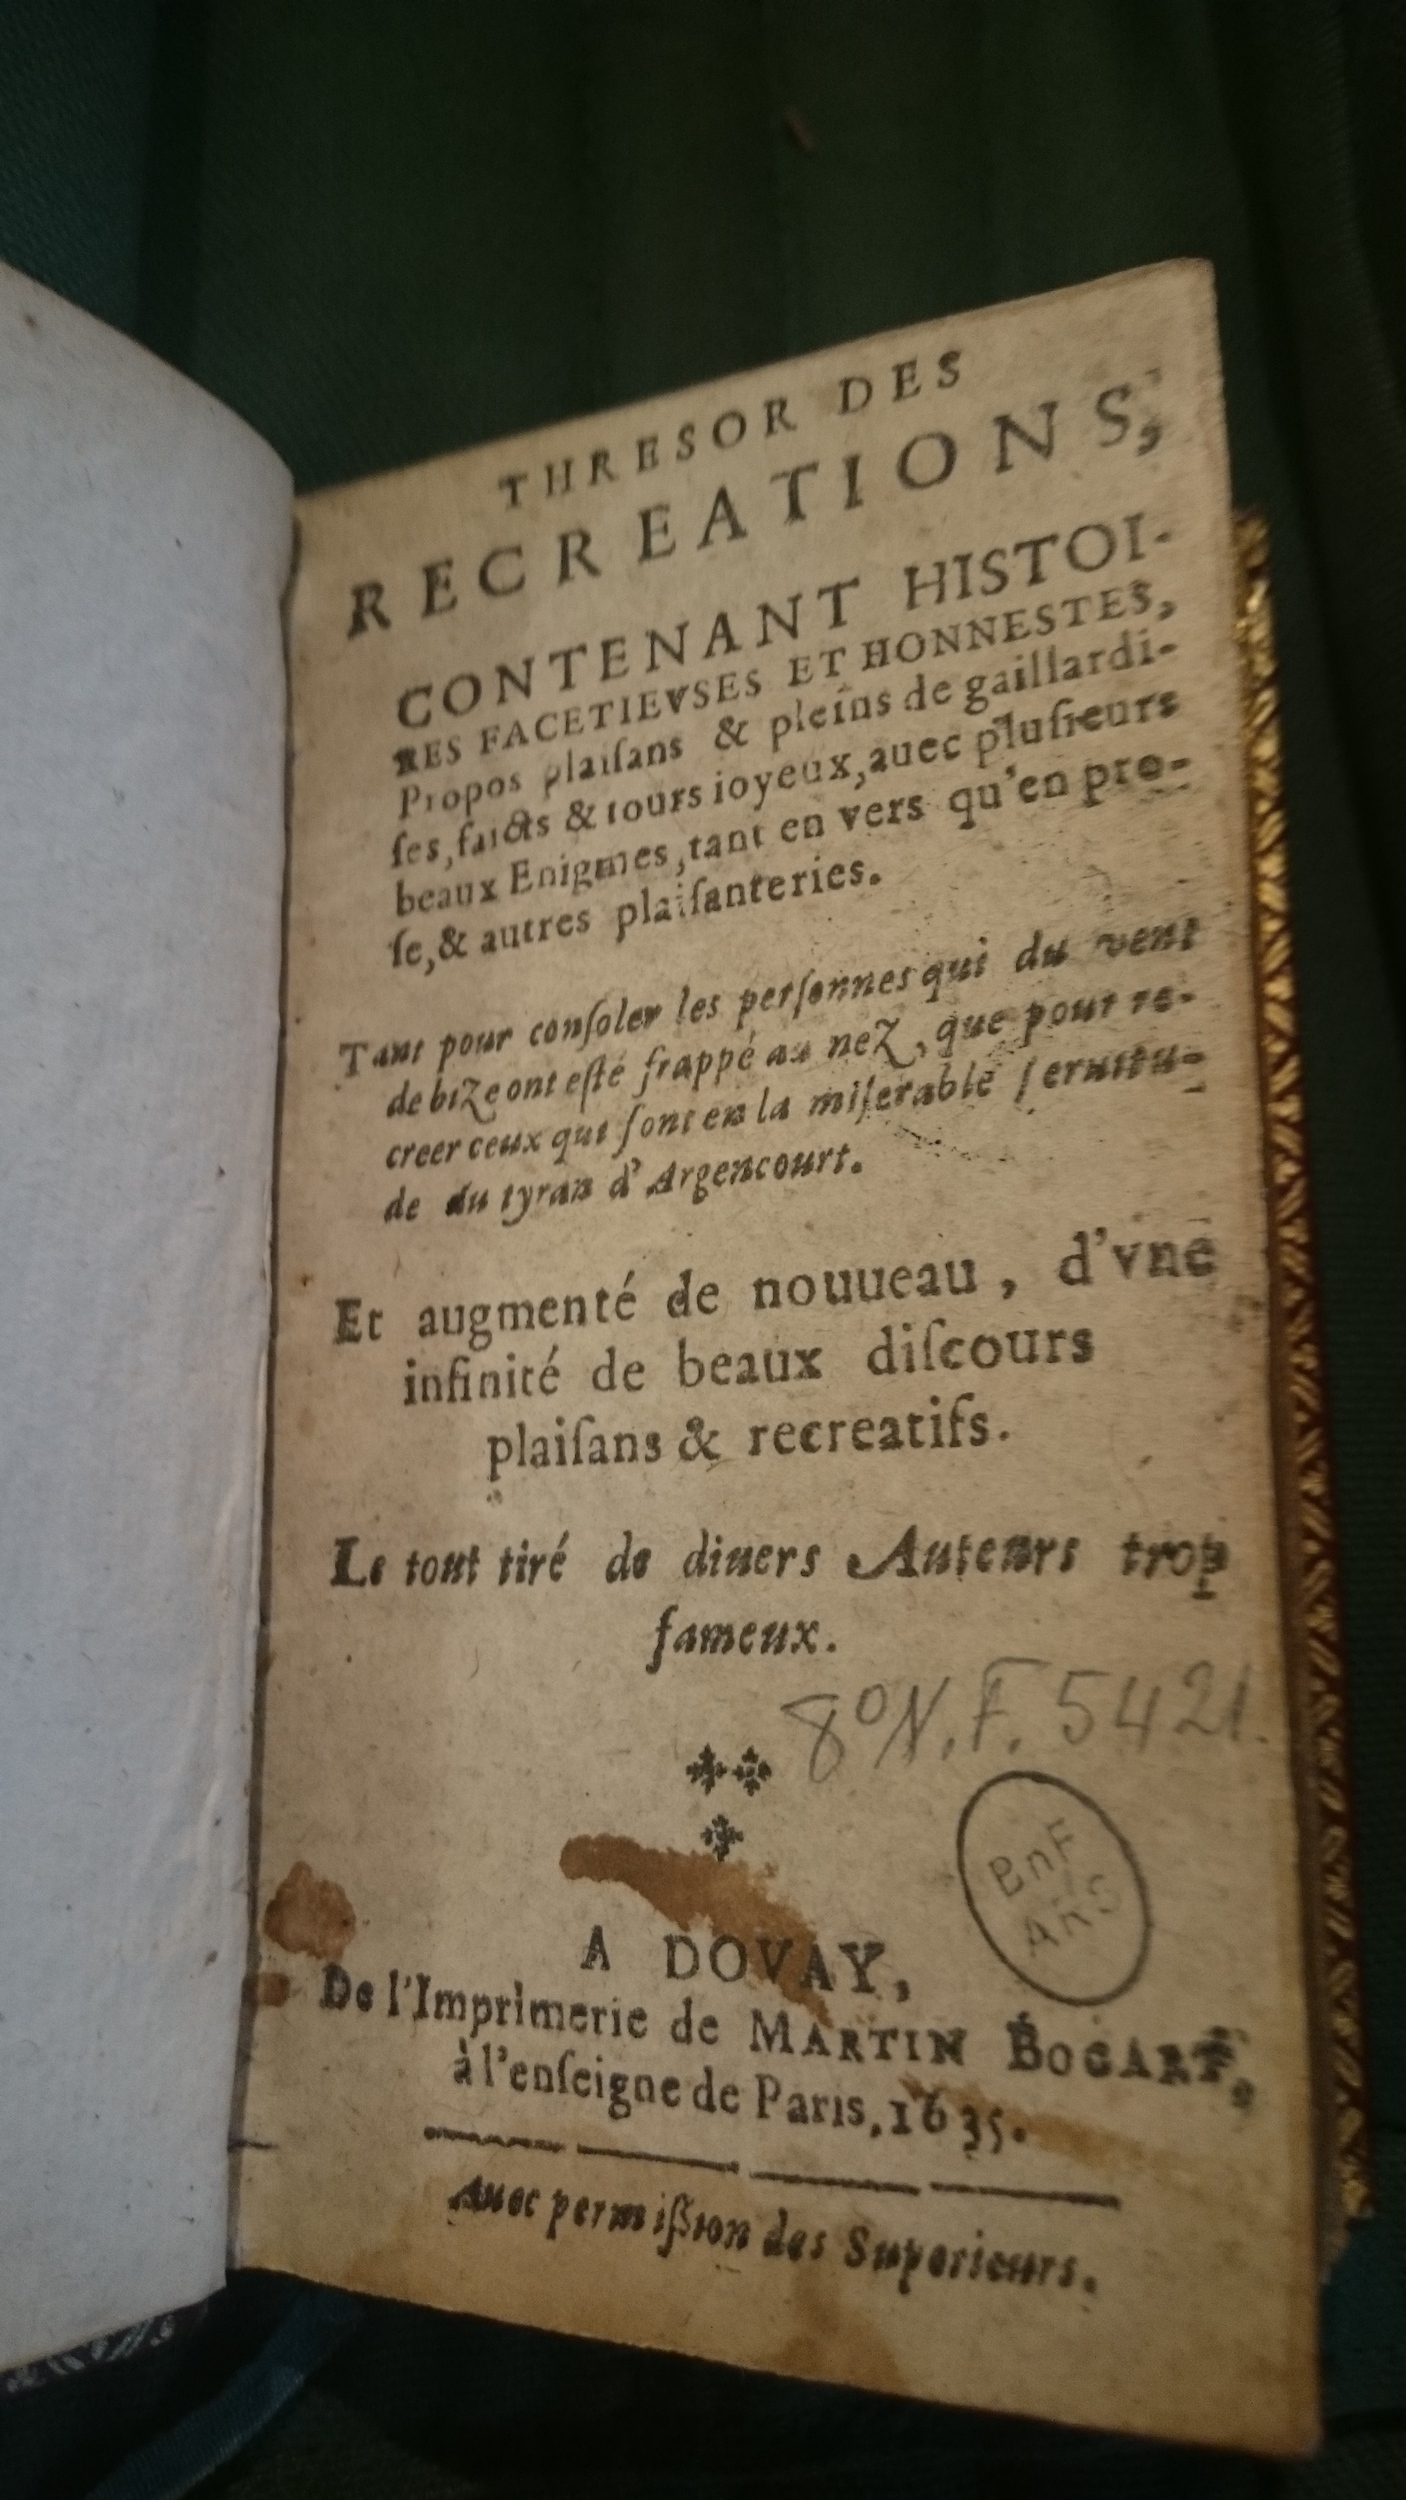 THRESOR DES
RECREATIONS,
CONTENANT HISTOI-
RES FACETIEVSES ET HONNESTES,
Propos plaiſans & pleins de gaillardi-
ſes, faicts & tours ioyeux, auec pluſieurs
beaux Enigmes, tant en vers qu'en pro-
ſe, & autres plaiſanteries.
Tant pour conſoler les perſonnes qui du vent
de bize ont eſté frappé au nez, que pour re-
creer ceux qui ſont en la miſerable ſeruitu-
de du tyran d'Argencourt.
Et augmenté de nouueau, d'vne
infinité de beaux diſcours
plaiſans & recreatifs.
Le tout tiré de diuers Auteurs trop
fameux.
8° N.F. 5421.
BnF
ARS
A DOVAY,
De l'Imprimerie de MARTIN BOGART,
à l'enſeigne de Paris, 1635.
Auec permiſsion des Superieurs.